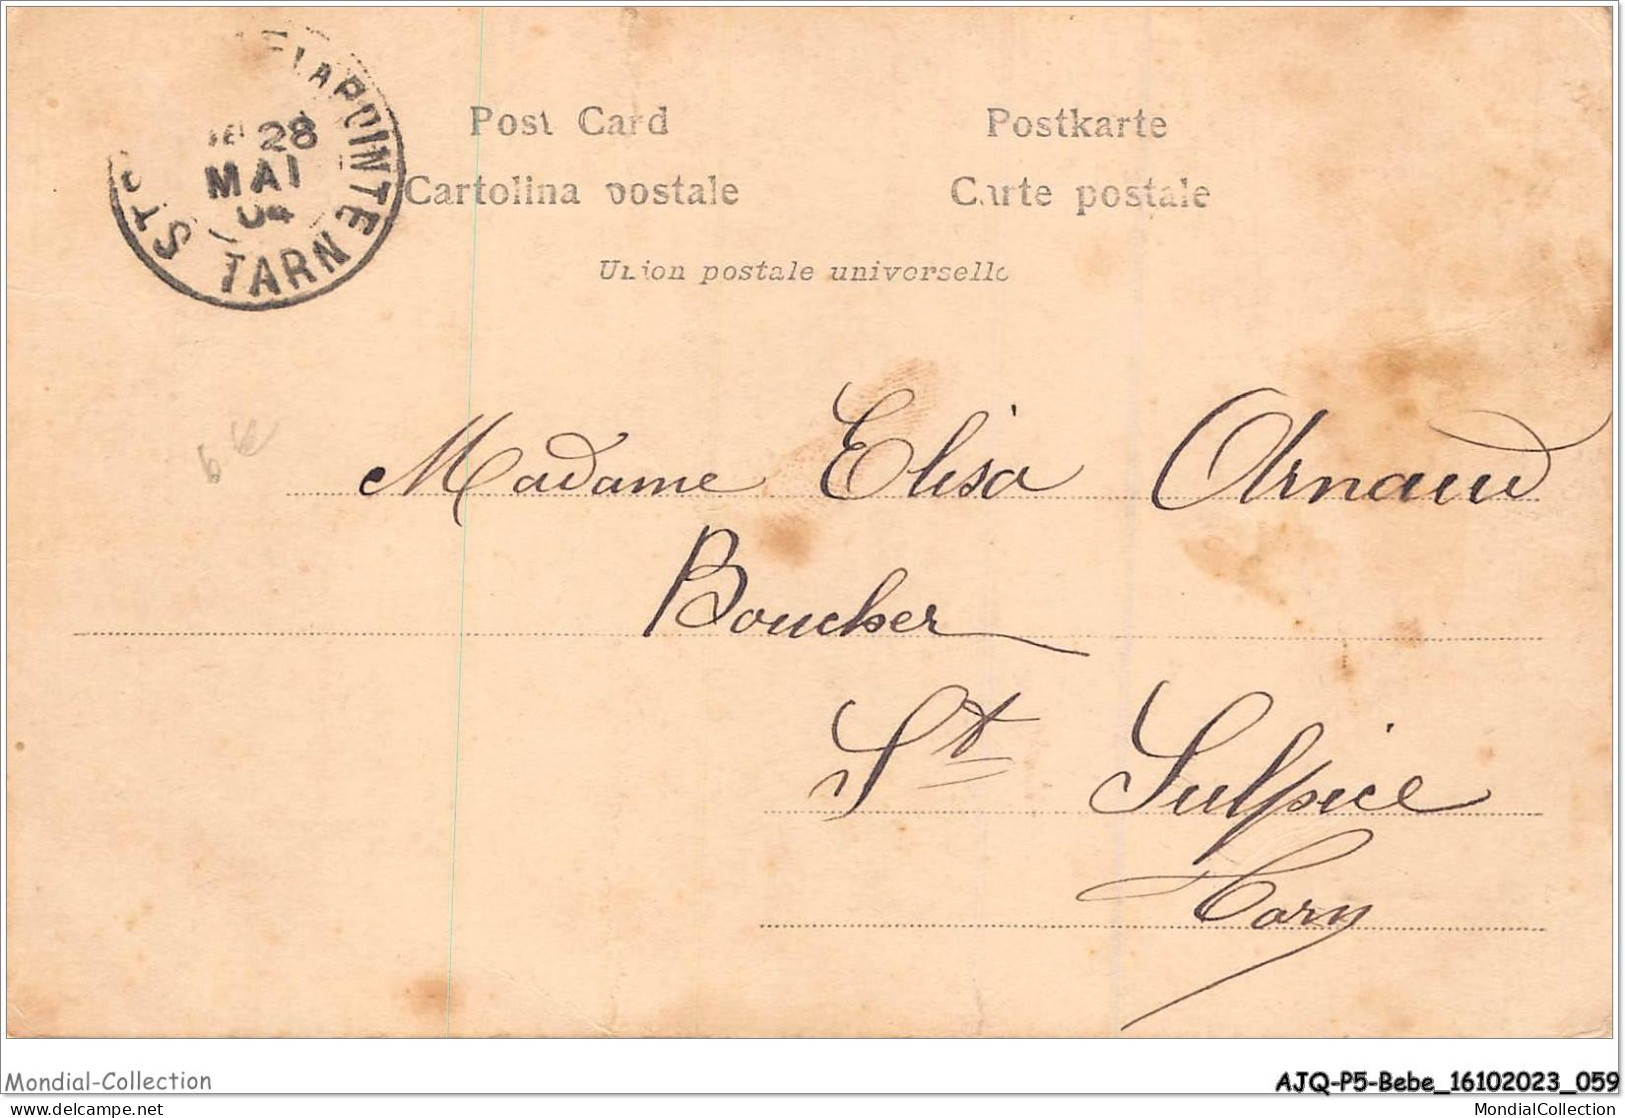 ST S ELAPOINTE
28
MAI
04
TARN
Post Card
Postkarte
Cartolina postale
Carte postale
Union postale universelle
Madame Elisa Arnaud
Boucher
St Sulpice
Tarn
Mondial-Collection
AJQ-P5-Bebe_16102023_059
delcampe.net
MondialCollection